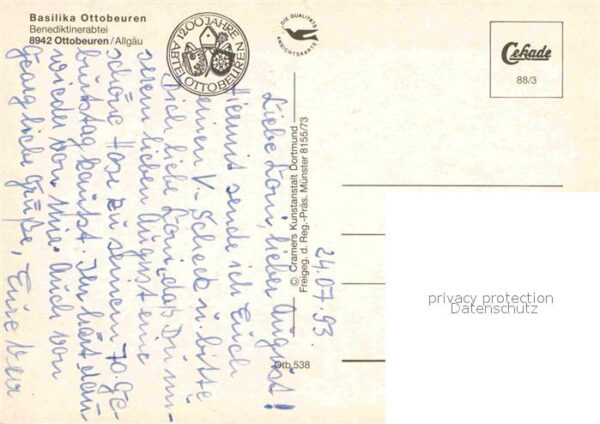 Basilika Ottobeuren
Benediktinerabtei
8942 Ottobeuren/Allgäu
1200 JAHRE
ABTEI OTTOBEUREN
DIE QUALITÄTS
ANSICHTSKARTE
Cekade
88/3
© Cramers Kunstanstalt Dortmund
Freigeg. d. Reg.-Präs. Münster 8155/73
Otb 538
24.07.93
Liebe Loni, lieber August!
Hiermit sende ich Euch
einen V-Scheck u. bitte
Dich liebe Loni, das Du un-
serem lieben August eine
schöne Hose zu seinem 70. Ge-
burtstag kaufst. Ihr hört dan
wieder von mir. Auch von
Georg liebe Grüße, Eure
privacy protection
Datenschutz